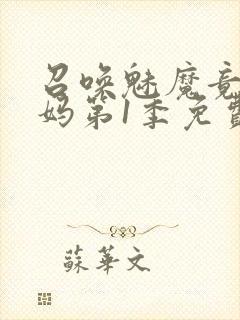 召唤魅魔竟
妈第1季免费
蘇華文